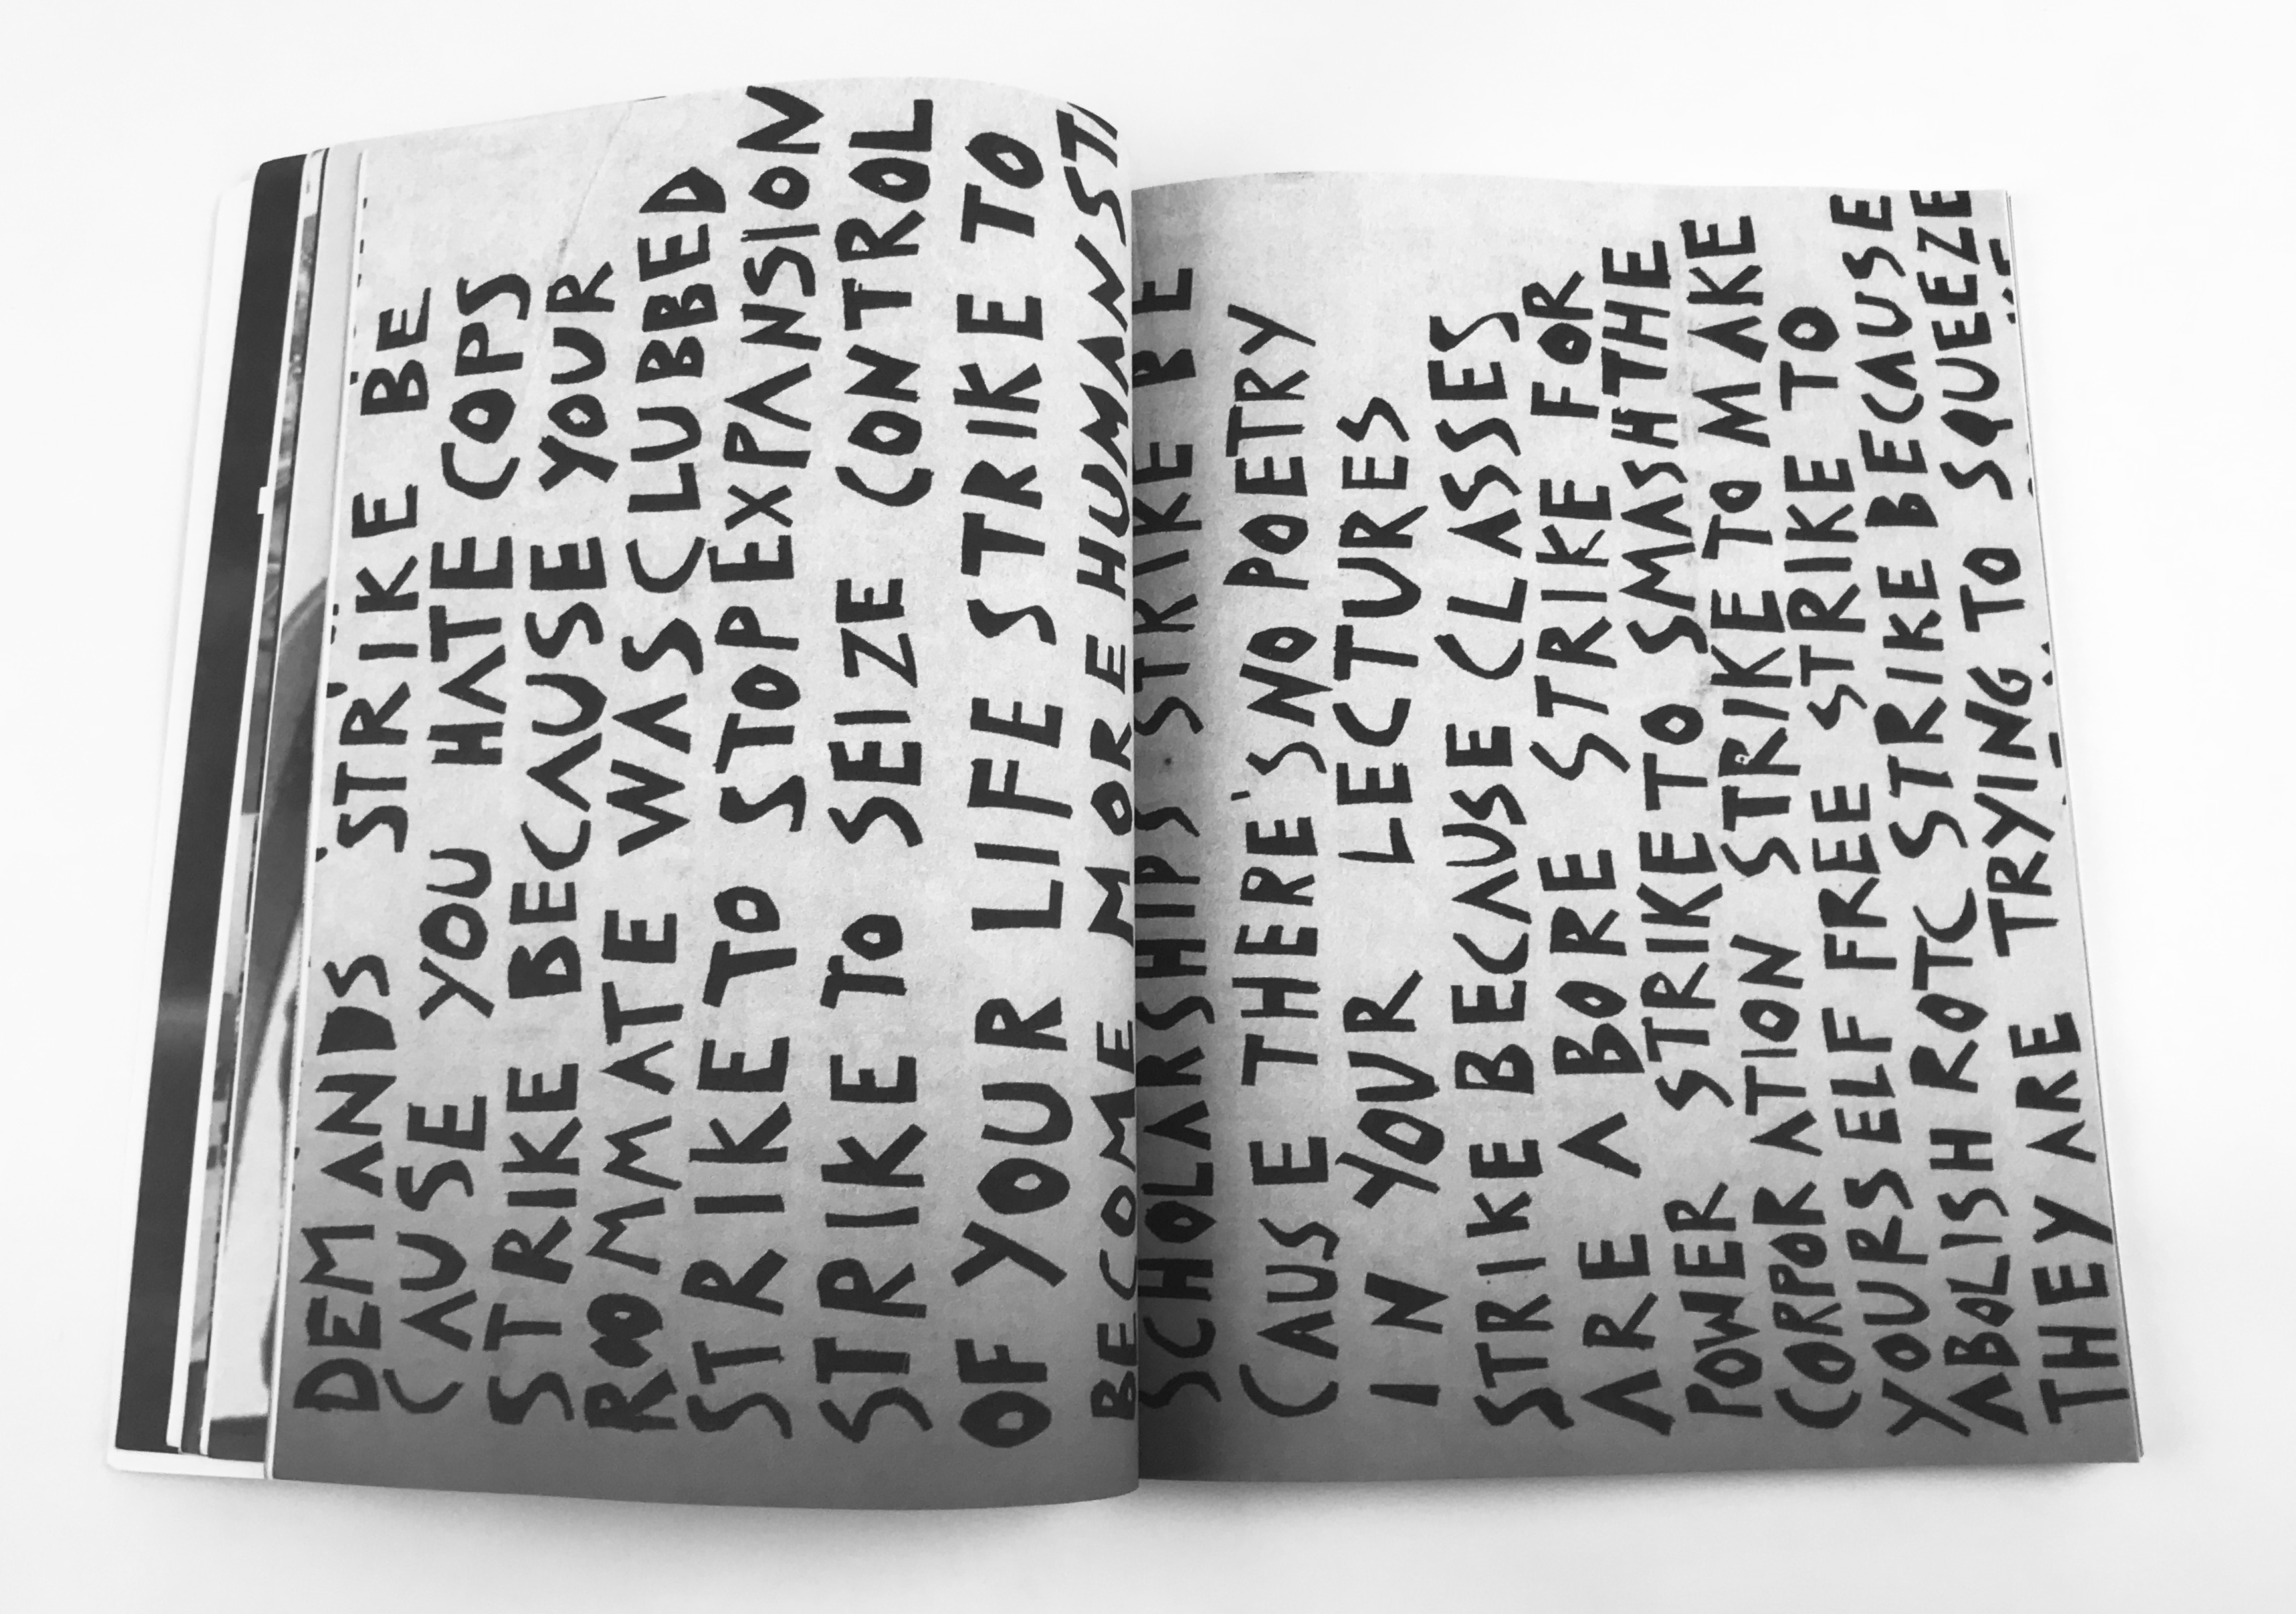 DEMANDS STRIKE BE
CAUSE YOU HATE COPS
STRIKE BECAUSE YOUR
ROOMMATE WAS CLUBBED
STRIKE TO STOP EXPANSION
STRIKE TO SEIZE CONTROL
OF YOUR LIFE STRIKE TO
BECOME MORE HUMAN
SCHOLARSHIPS STRIKE BE
CAUSE THERE'S NO POETRY
IN YOUR LECTURES
STRIKE BECAUSE CLASSES
ARE A BORE STRIKE FOR
POWER STRIKE TO SMASH THE
CORPORATION STRIKE TO MAKE
YOURSELF FREE STRIKE TO
ABOLISH ROTC STRIKE BECAUSE
THEY ARE TRYING TO SQUEEZE